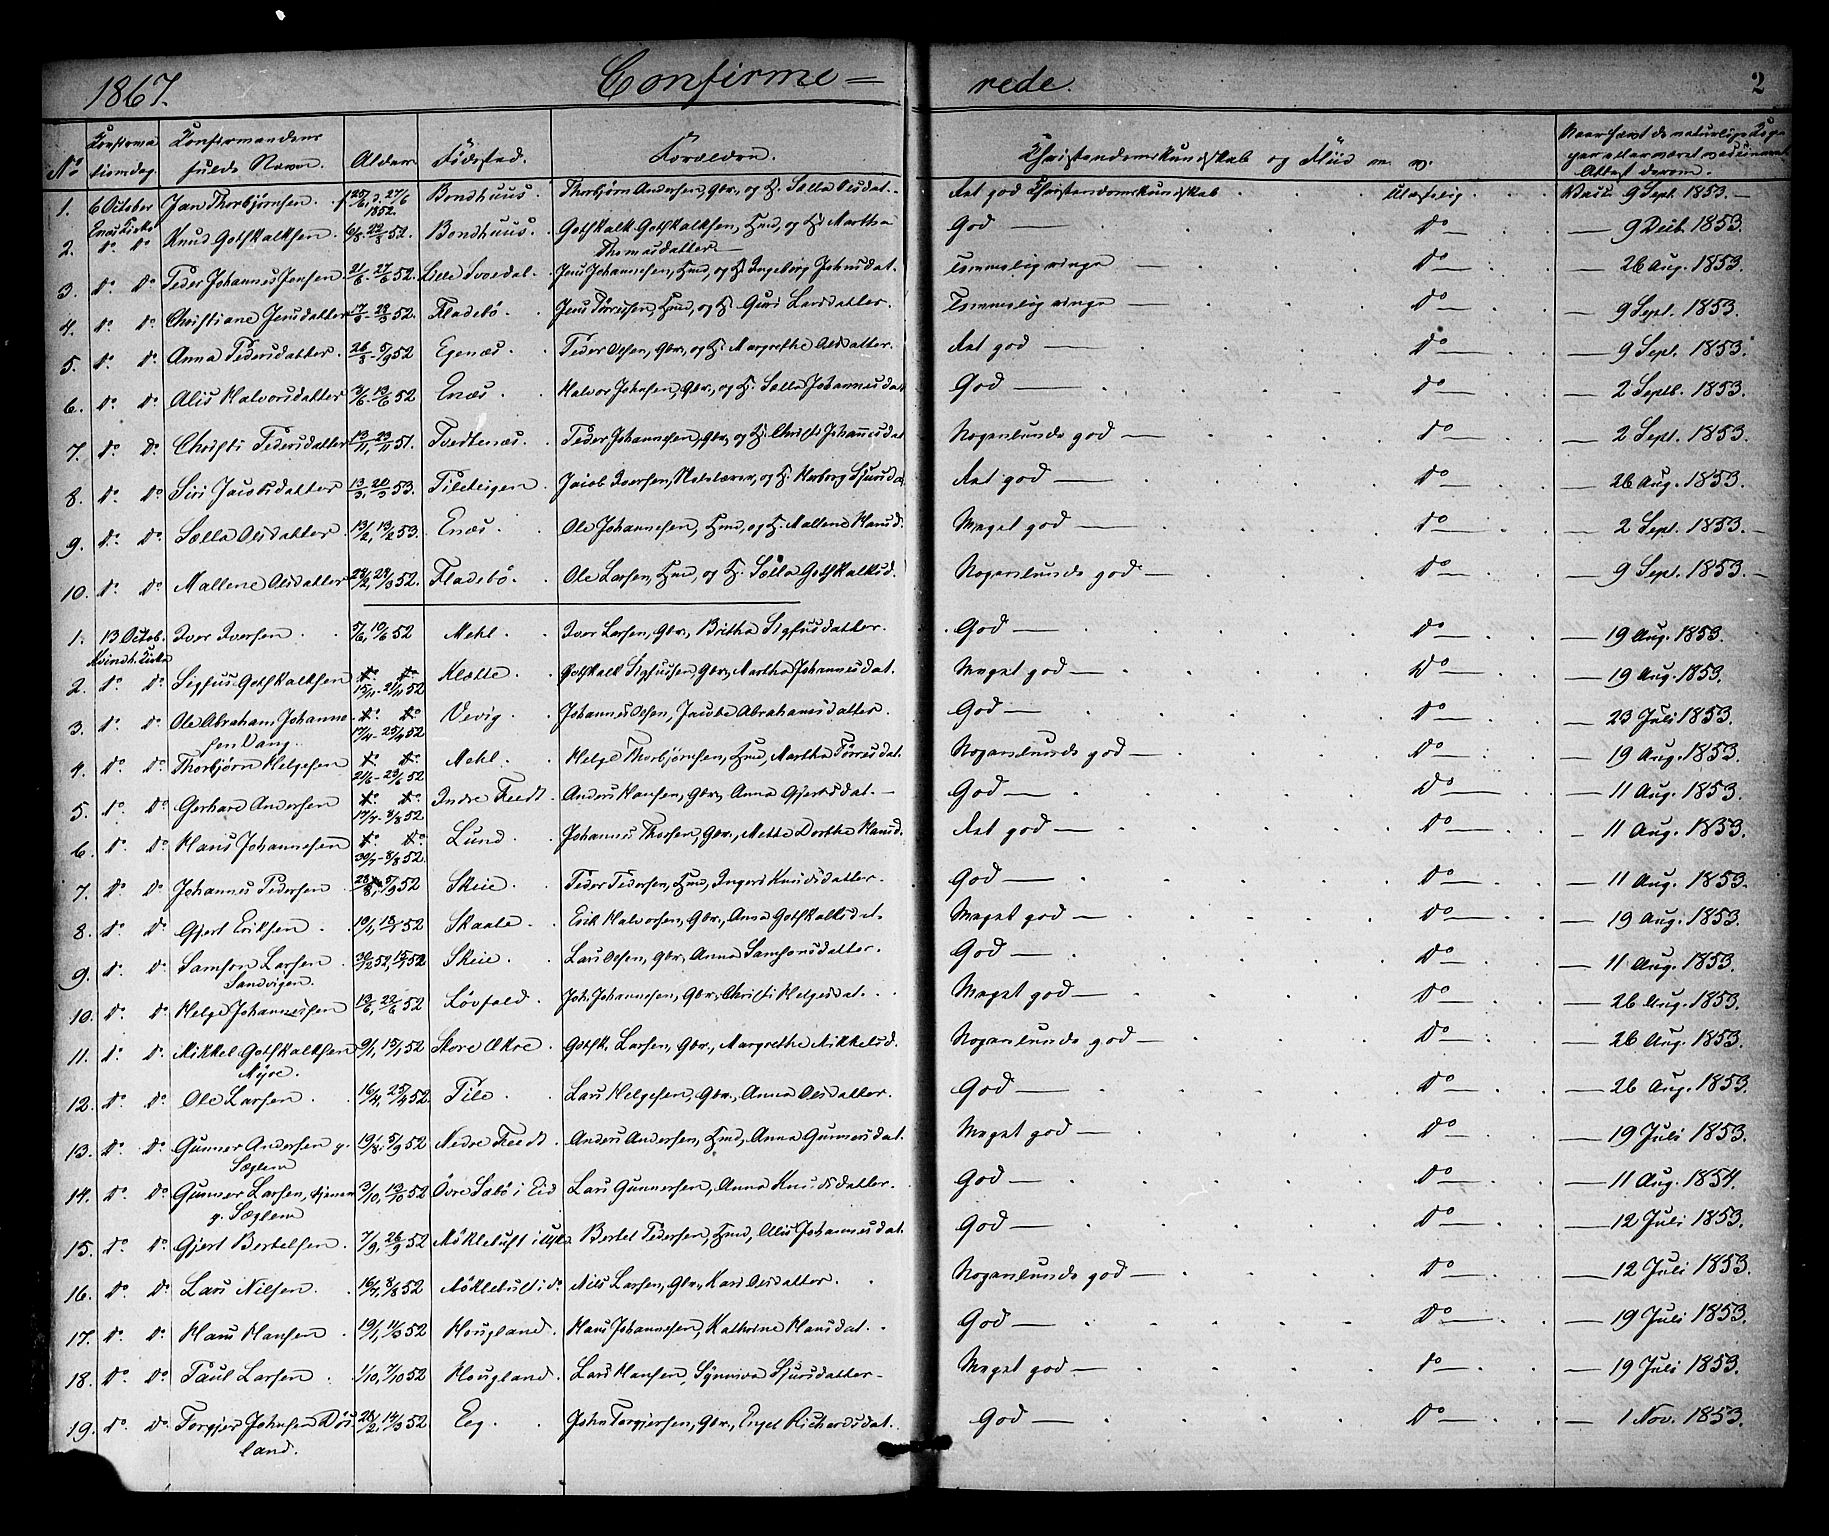 1867. Confirme= rede. 2
No Konfirma Konfirmandens Alder. Födested. Forældre. Christendomskundskab og Fliid m. v. Naar
tionsdag. fulde Navn. Attest derom.
1. 6 October Jan Thorbjörnsen. f 25/6, d. 27/6 1852. Bondhuus. Thorbjörn Andersen, Gbr., og H. Sælla Olsdat. Ret god Christendomskundskab Udæsselig Vacc. 9 Sept. 1853.
Enæs Kirke
2. do do Knud Gotskalksen 9/8 - 22/8 52. Bondhuus. Gotskalk Gotskalksen, Hmd, og H. Martha God — do — — 9 Decb. 1853.
Thomasdatter —
3. do do Peder Johannes Jensen 21/6 - 27/6 52. Lille Svoedal. Jens Johannesen, Hmd, og H. Ingeborg Johnsdat. Temmelig ringe — do — — 26 Aug. 1853.
4. do do Christiane Jensdatter 17/3 - 28/3 52. Fladebö. Jens Törresen, Hmd, og H. Guri Larsdatter. Temmelig ringe — do — — 9 Sept. 1853.
5. do do Anna Pedersdatter. 26/8 - 5/9 52 Egenæs. Peder Olsen, Gbr., og H. Margrethe Olsdatter. Ret god — do — — 9 Sept. 1853.
6. do do Alis Halvorsdatter 7/6 - 13/6 52 Enæs. Halvor Johnsen, Gbr., og H. Sælla Johannesdat God — do — — 2 Septb. 1853.
7. do do Christi Pedersdatter 13/11, 23/11 51. Tvedtenæs. Peder Johannesen, Gbr., og H. Christi Johannesdat Nogenlunde god — do — — 2 Sept. 1853.
8. do do Siri Jacobsdatter 13/3, 20/3 53. Pileteigen. Jacob Iversen, og H. Herborg Sjursdat Ret god — do — — 26 Aug. 1853.
9. do do Sælla Olsdatter 13/2, 13/2 53. Enæs. Ole Johannesen, Hmd, og H. Mallene Hansd. Meget god — do — — 2 Sept. 1853. —
10. do do Mallene Olsdatter 24/2, 29/3 52. Fladebö. Ole Larsen, Hmd, og H. Sælla Gotskalksd. Nogenlunde god — do — — 9 Sept. 1853. —
1. 13 Octob. Iver Iversen. 5/6, 10/6 52 Mehl. Iver Larsen, Gbr., Britha Sigfusdatter. God — do — — 19 Aug. 1853.
Kvindh. Kirke
2. do do Sigfus Gotskalksen 15/11 - 21/11 52 Klætte. Gotskalk Sigfussen, Gbr., Martha Johannesdat. Meget god — do — — 19 Aug. 1853.
3. do do Ole Abraham Johanne- 17/4 - 25/4 52 Vevig. Johannes Olsen, Jacobe Abrahamsdatter. God — do — — 23 Juli 1853.
sen Vang.
4. do do Thorbjörn Helgesen 21/6 - 29/6 52 Mehl. Helge Thorbjörnsen, Hmd, Martha Törresdat. Nogenlunde god — do — — 19 Aug. 1853.
5. do do Gerhard Andersen 17/7 - 8/8 52 Indre Feedt. Anders Hansen, Gbr., Anna Gjertsdat. — God — do — — 11 Aug. 1853.
6. do do Hans Johannesen 30/7 - 8/8 52. Lund. Johannes Thoesen, Gbr., Mette Dorthe Hansd. Ret god — do — — 11 Aug. 1853.
7. do do Johannes Pedersen 28/8, 5/9 52 Skeie. Peder Pedersen, Hmd, Ingeri Knudsdatter. God — do — — 11 Aug. 1853.
8. do do Gjert Eriksen. 10/1, 18/1 52 Skaale. Erik Halvorsen, Gbr., Anna Gotskalksdat. Meget god — do — — 19 Aug. 1853.
9. do do Samson Larsen Skeie. Lars Olsen, Gbr., Anna Samsonsdatter. God — do — — 11 Aug. 1853.
Sandvigen.
10. do do Helge Johannessen 13/6, 22/6 52 Lövfald. Joh. Johannesen, Gbr., Christi Helgesdat. Meget god — do — — 26 Aug. 1853.
11. do do Mikkel Gotskalksen 9/1, 15/1 52 Store Ækre. Gotsk. Larsen, Gbr., Margrethe Mikkelsd. Nogenlunde god — do — — 26 Aug. 1853.
Myre.
12. do do Ole Larsen. 16/4, 25/4 52. Pile. Lars Helgesen, Gbr., Anna Olsdatter. God — do — — 26 Aug. 1853.
13. do do Gunner Andersen g. 19/8, 5/9 52 Nedre Feedt. Anders Andersen, Hmd, Anna Gunnersdat. Meget god — do — — 19 Juli 1853.
Sæglem
14. do do Gunner Larsen, 3/10, 13/10 52 Övre Sæbö i Eid Lars Gunnersen, Anna Knudsdatter. God — do — — 11 Aug. 1854.
g. Sæglem
15. do do Gjert Bertelsen. 7/9, 26/9 52 Möklebust i Bertel Pedersen, Hmd, Alis Johannesdat God — do — — 12 Juli 1853.
16. do do Lars Nilsen. 16/7, 8/8 52 Möklebust i do Nils Larsen, Gbr., Kari Olsdatter. Nogenlunde god — do — — 12 Juli 1853.
17. do do Hans Hansen 19/1, 11/3 52 Hougland. Hans Johannesen, Kathrine Hansdat. God — do — — 19 Juli 1853.
18. do do Paul Larsen. 1/10, 7/10 52 Hougland. Lars Hansen, Synneva Sjursdatter — Meget god — do — — 19 Juli 1853.
19. do do Torgjer Johnsen Dös 28/2, 14/3 52 Eeg. John Torgjersen, Gbr., Engel Richardsdat. God — do — — 1 Nov. 1853.
land.